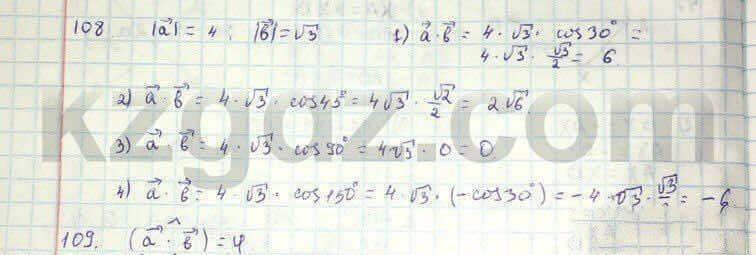 108. |a⃗| = 4; |b⃗| = √3 1) a⃗ · b⃗ = 4 · √3 · cos 30° =
4 · √3 · √3/2 = 6.
2) a⃗ · b⃗ = 4 · √3 · cos 45° = 4√3 · √2/2 = 2√6.
3) a⃗ · b⃗ = 4 · √3 · cos 90° = 4√3 · 0 = 0
4) a⃗ · b⃗ = 4 · √3 · cos 150° = 4 · √3 · (-cos 30°) = -4 · √3 · √3/2 = -6
109. (a⃗ ^ · b⃗) = φ
kzgdz.com